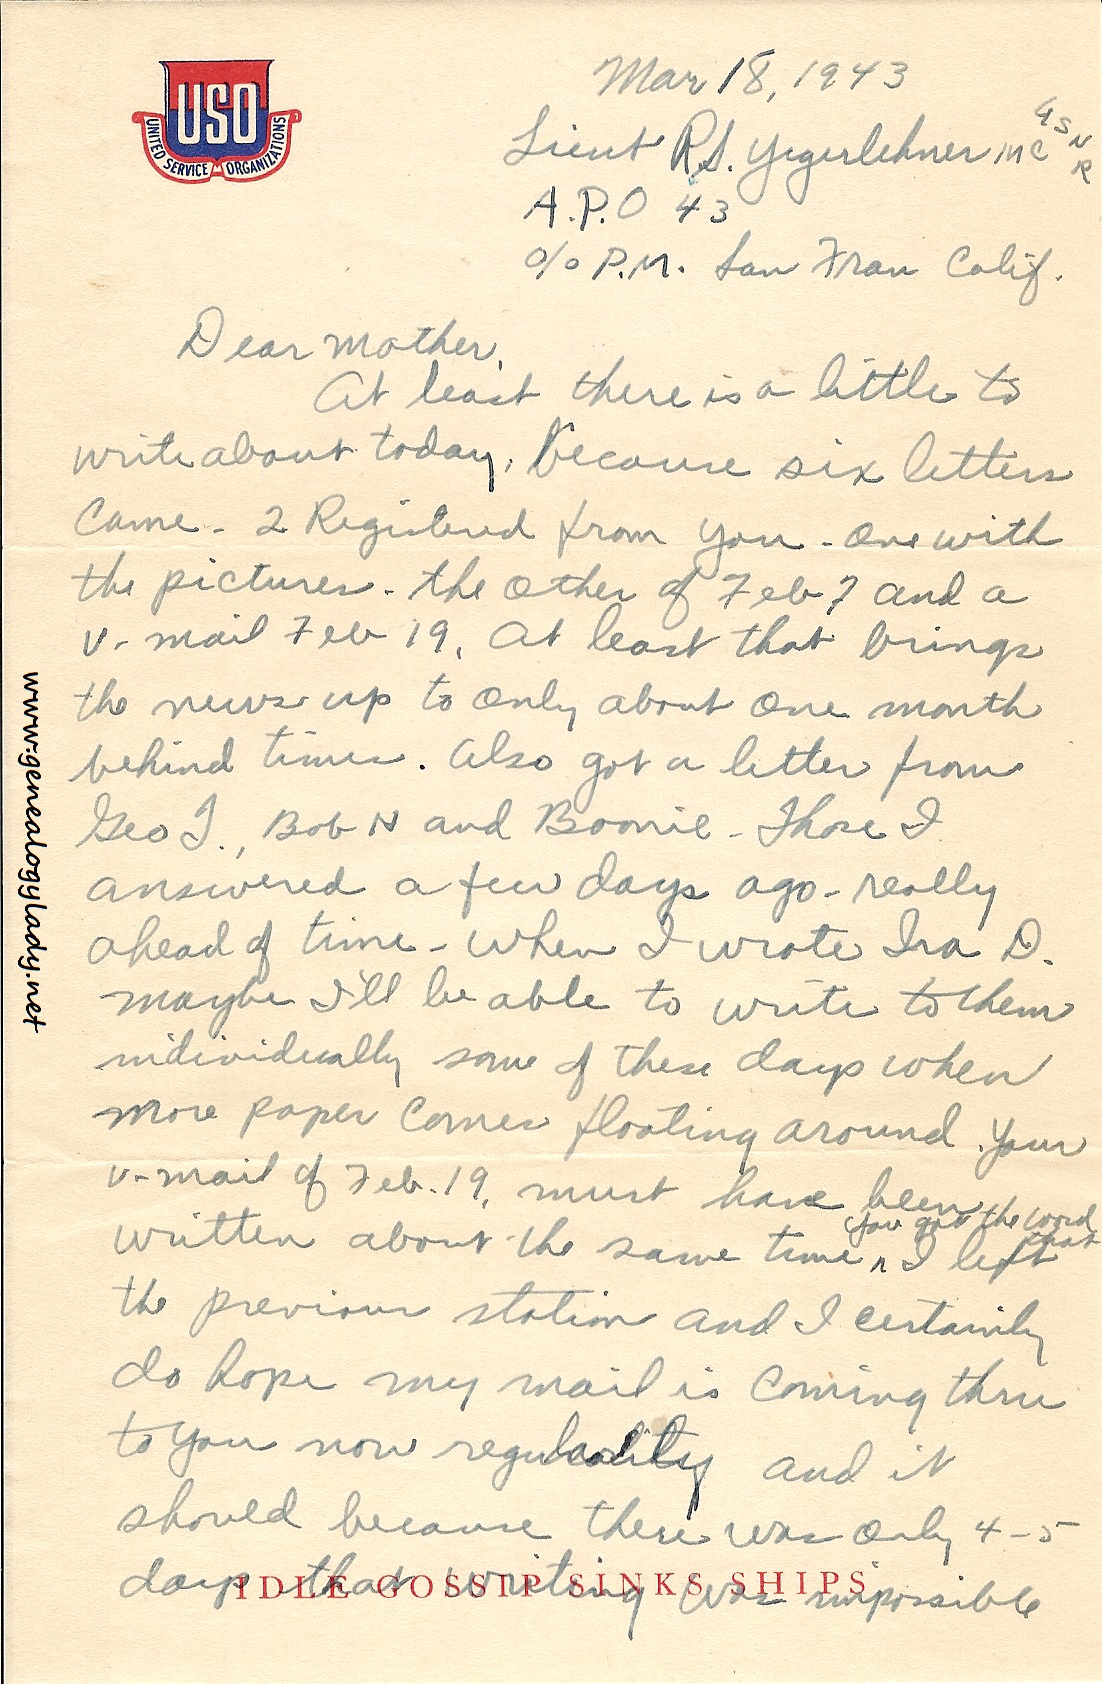 USO
UNITED SERVICE ORGANIZATIONS
Mar 18, 1943
Lieut R.S. Yegerlehner MC USNR
A.P.O 43
c/o P.M. San Fran Calif.
Dear Mother,
At least there is a little to
write about today, because six letters
came - 2 Registered from you - one with
the pictures - the other of Feb 7 and a
V-mail Feb 19. At least that brings
the news up to only about one month
behind times. Also got a letter from
Geo J., Bob N and Boonie - Those I
answered a few days ago - really
ahead of time - when I wrote Ira D.
maybe I'll be able to write to them
individually some of these days when
more paper comes floating around. Your
V-mail of Feb. 19, must have been
you got the word
that
written about the same time ^ I left
the previous station and I certainly
do hope my mail is coming thru
to you now and it
should because there was only 4-5
days that writing was impossible
IDLE GOSSIP SINKS SHIPS
www.genealogylady.net